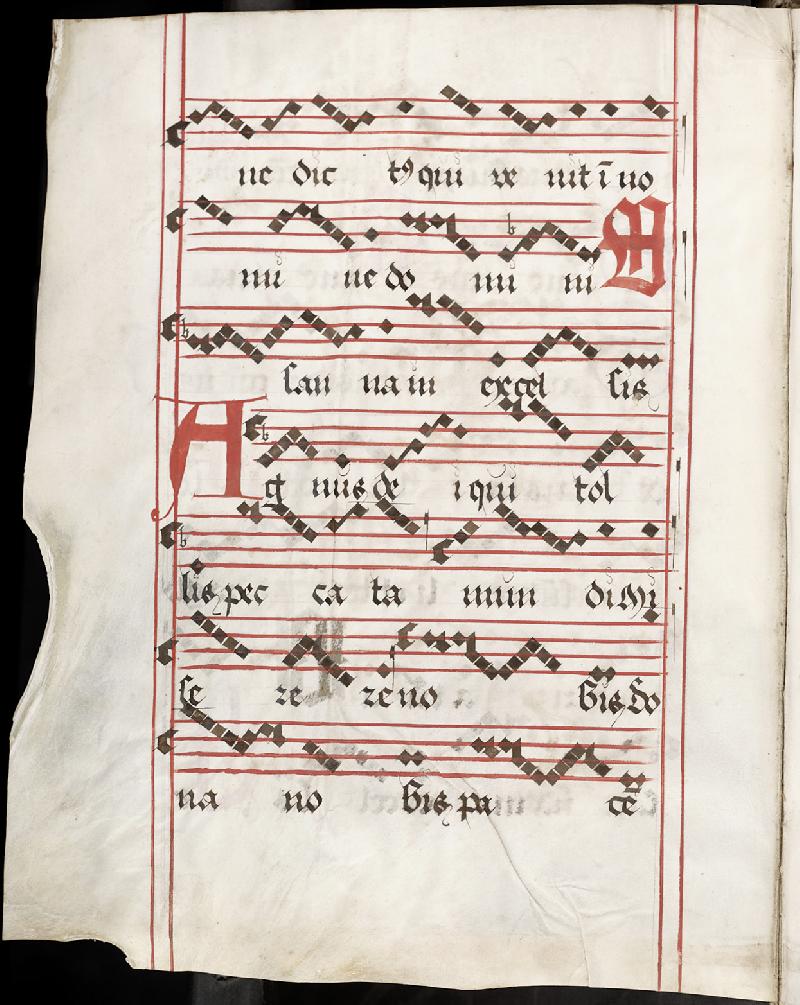 ne dic tꝰ qui ve nit ī no
mi ne do mi ni
san na in excel sis
Ag nus de i qui tol
lis pec ca ta mun di Mi
se re re no bis do
na no bis pa cē